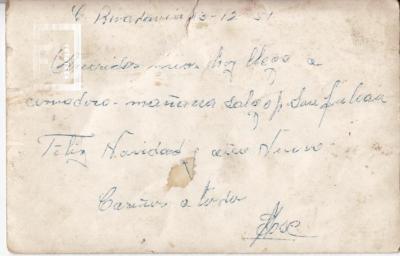 C. Rivadavia 13-12-51
Queridos mios hoy llego a
comodoro - mañana salgo p. San Julian
Feliz Navidad y año Nuevo
Cariños a todos